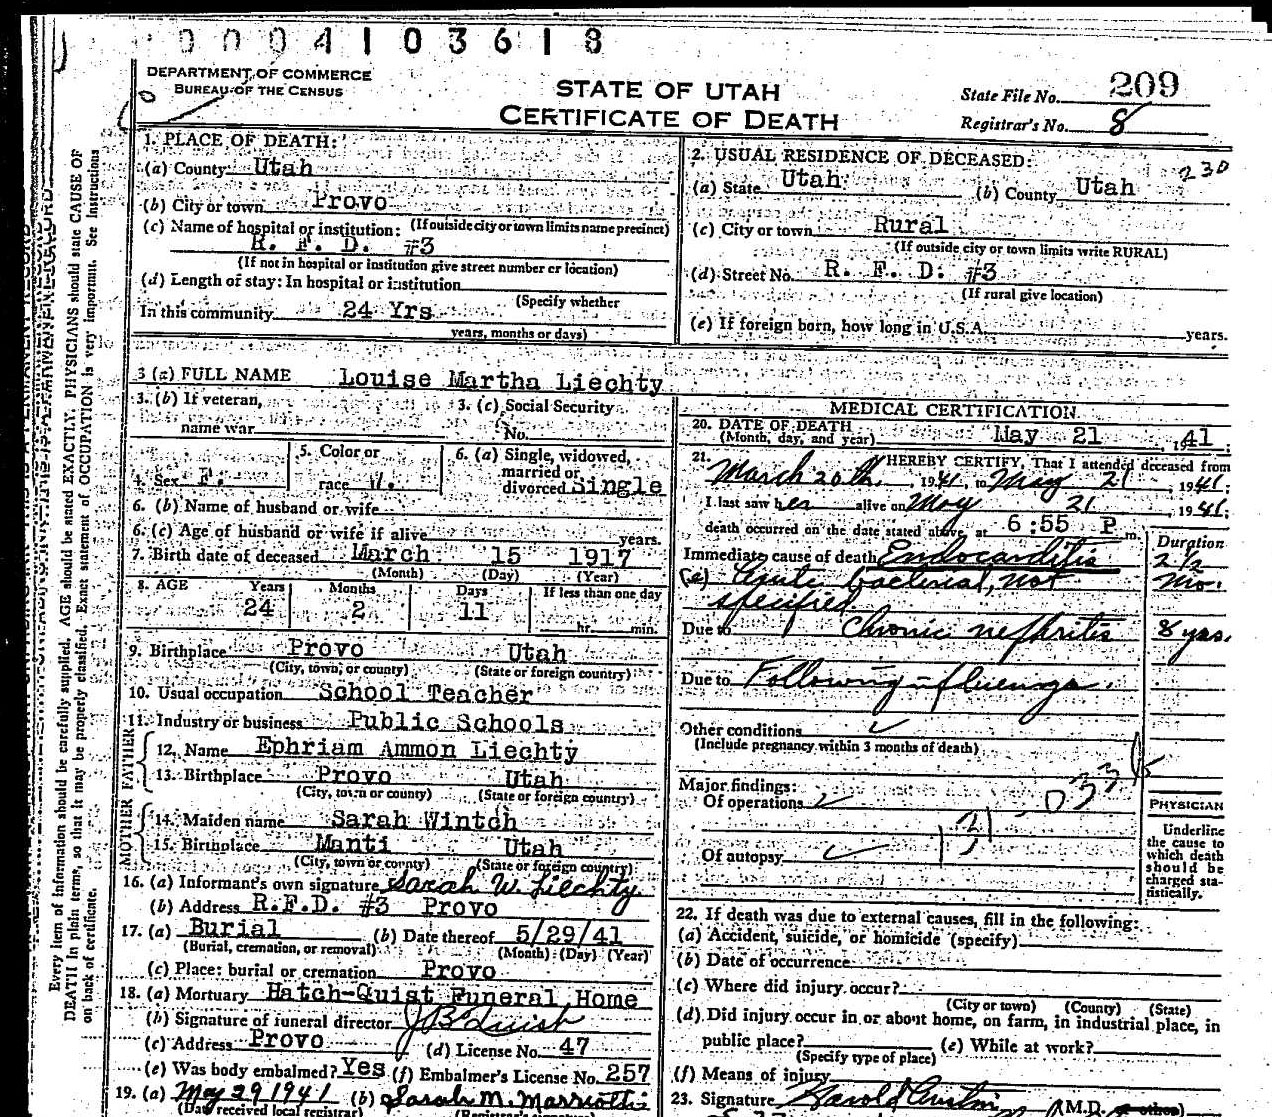 0004103618
DEPARTMENT OF COMMERCE
BUREAU OF THE CENSUS
STATE OF UTAH
CERTIFICATE OF DEATH
State File No. 209
Registrar's No. 8
1. PLACE OF DEATH:
(a) County Utah
(b) City or town Provo
(If outside city or town limits name precinct)
(c) Name of hospital or institution:
R. F. D. #3
(If not in hospital or institution give street number or location)
(d) Length of stay: In hospital or institution
(Specify whether
In this community 24 Yrs
years, months or days)
2. USUAL RESIDENCE OF DECEASED:
230
(a) State Utah (b) County Utah
(c) City or town Rural
(If outside city or town limits write RURAL)
(d) Street No. R. F. D. #3
(If rural give location)
(e) If foreign born, how long in U.S.A. years.
3 (a) FULL NAME Louise Martha Liechty
3. (b) If veteran, name war
3. (c) Social Security No.
4. Sex F.
5. Color or race W.
6. (a) Single, widowed, married or divorced Single
6. (b) Name of husband or wife
6. (c) Age of husband or wife if alive years.
7. Birth date of deceased March 15 1917
(Month) (Day) (Year)
8. AGE Years Months Days If less than one day
24 2 11 hr. min.
9. Birthplace Provo Utah
(City, town, or county) (State or foreign country)
10. Usual occupation School Teacher
11. Industry or business Public Schools
FATHER
12. Name Ephriam Ammon Liechty
13. Birthplace Provo Utah
(City, town or county) (State or foreign country)
MOTHER
14. Maiden name Sarah Wintch
15. Birthplace Manti Utah
(City, town or county) (State or foreign country)
16. (a) Informant's own signature Sarah W. Liechty
(b) Address R.F.D. #3 Provo
17. (a) Burial (b) Date thereof 5/29/41
(Burial, cremation, or removal) (Month) (Day) (Year)
(c) Place: burial or cremation Provo
18. (a) Mortuary Hatch-Quist Funeral Home
(b) Signature of funeral director J B Quist
(c) Address Provo (d) License No. 47
(e) Was body embalmed? Yes (f) Embalmer's License No. 257
19. (a) May 29 1941 (b) Sarah M. Marriotti
(Date received local registrar) (Registrar's signature)
MEDICAL CERTIFICATION
20. DATE OF DEATH
(Month, day, and year) May 21, 41.
21. I HEREBY CERTIFY, That I attended deceased from
March 20th, 1941, to May 21, 1941;
I last saw her alive on May 21, 1941;
death occurred on the date stated above, at 6:55 P m.
Duration
Immediate cause of death Endocarditis 2 1/2 mo.
(a) Acute bacterial, not specified
Due to Chronic nephritis 8 yrs.
Due to Following influenza.
Other conditions
(Include pregnancy within 3 months of death)
Major findings:
Of operations
Of autopsy
PHYSICIAN
Underline
the cause to
which death
should be
charged sta-
tistically.
22. If death was due to external causes, fill in the following:
(a) Accident, suicide, or homicide (specify)
(b) Date of occurrence
(c) Where did injury occur?
(City or town) (County) (State)
(d) Did injury occur in or about home, on farm, in industrial place, in
public place? (e) While at work?
(Specify type of place)
(f) Means of injury
23. Signature (M.D. or other)
Every item of information should be carefully supplied. AGE should be stated EXACTLY. PHYSICIANS should state CAUSE OF
DEATH in plain terms, so that it may be properly classified. Exact statement of OCCUPATION is very important. See instructions
on back of certificate.